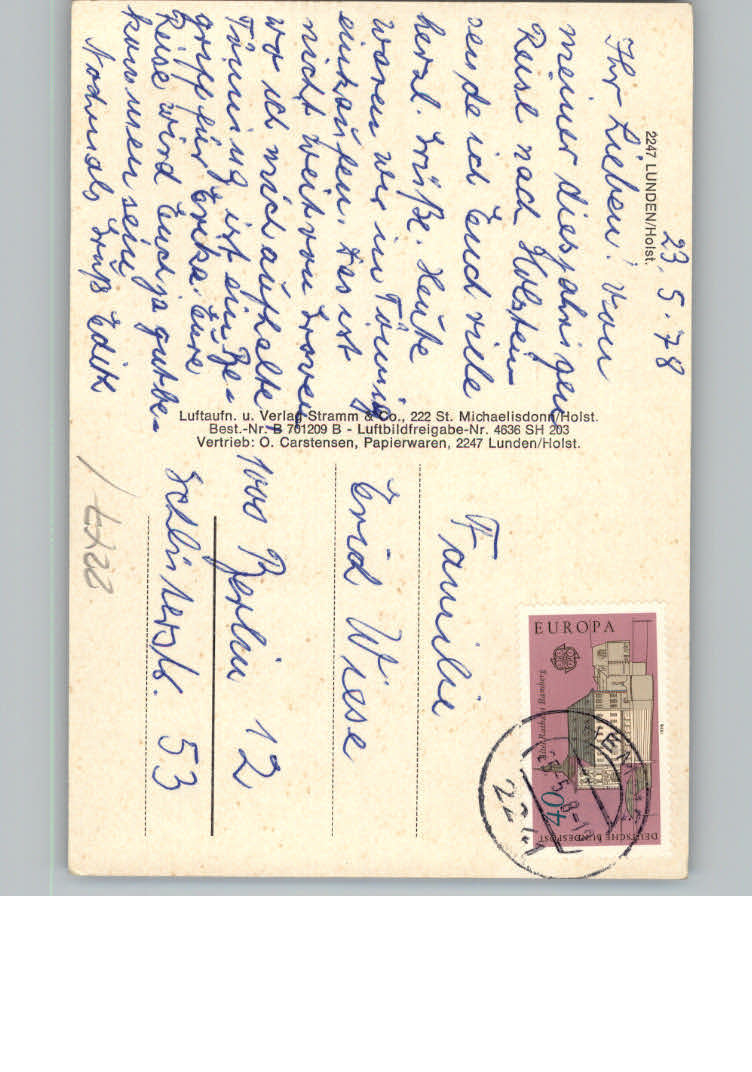 2247 LUNDEN/Holst.
23.5.78
Ihr Lieben! Von
meiner diesjährigen
Reise nach Holstein
sende ich Euch viele
herzl. Grüße. Heute
waren wir in Tönnig
einkaufen. Das ist
nicht weit von
wo ich mich aufhalte,
Tönning ist ein Be-
griff für Erika. Eure
Reise wird Euch ja gut be-
kommen sein,
Nochmals Gruß Edith
Luftaufn. u. Verlag Stramm & Co., 222 St. Michaelisdonn/Holst.
Best.-Nr. B 701209 B - Luftbildfreigabe-Nr. 4636 SH 203
Vertrieb: O. Carstensen, Papierwaren, 2247 Lunden/Holst.
EUROPA
Altes Rathaus Bamberg
40
DEUTSCHE BUNDESPOST
1978
2241
Familie
Erich Wiese
1000 Berlin 12
Schlüterstr. 53